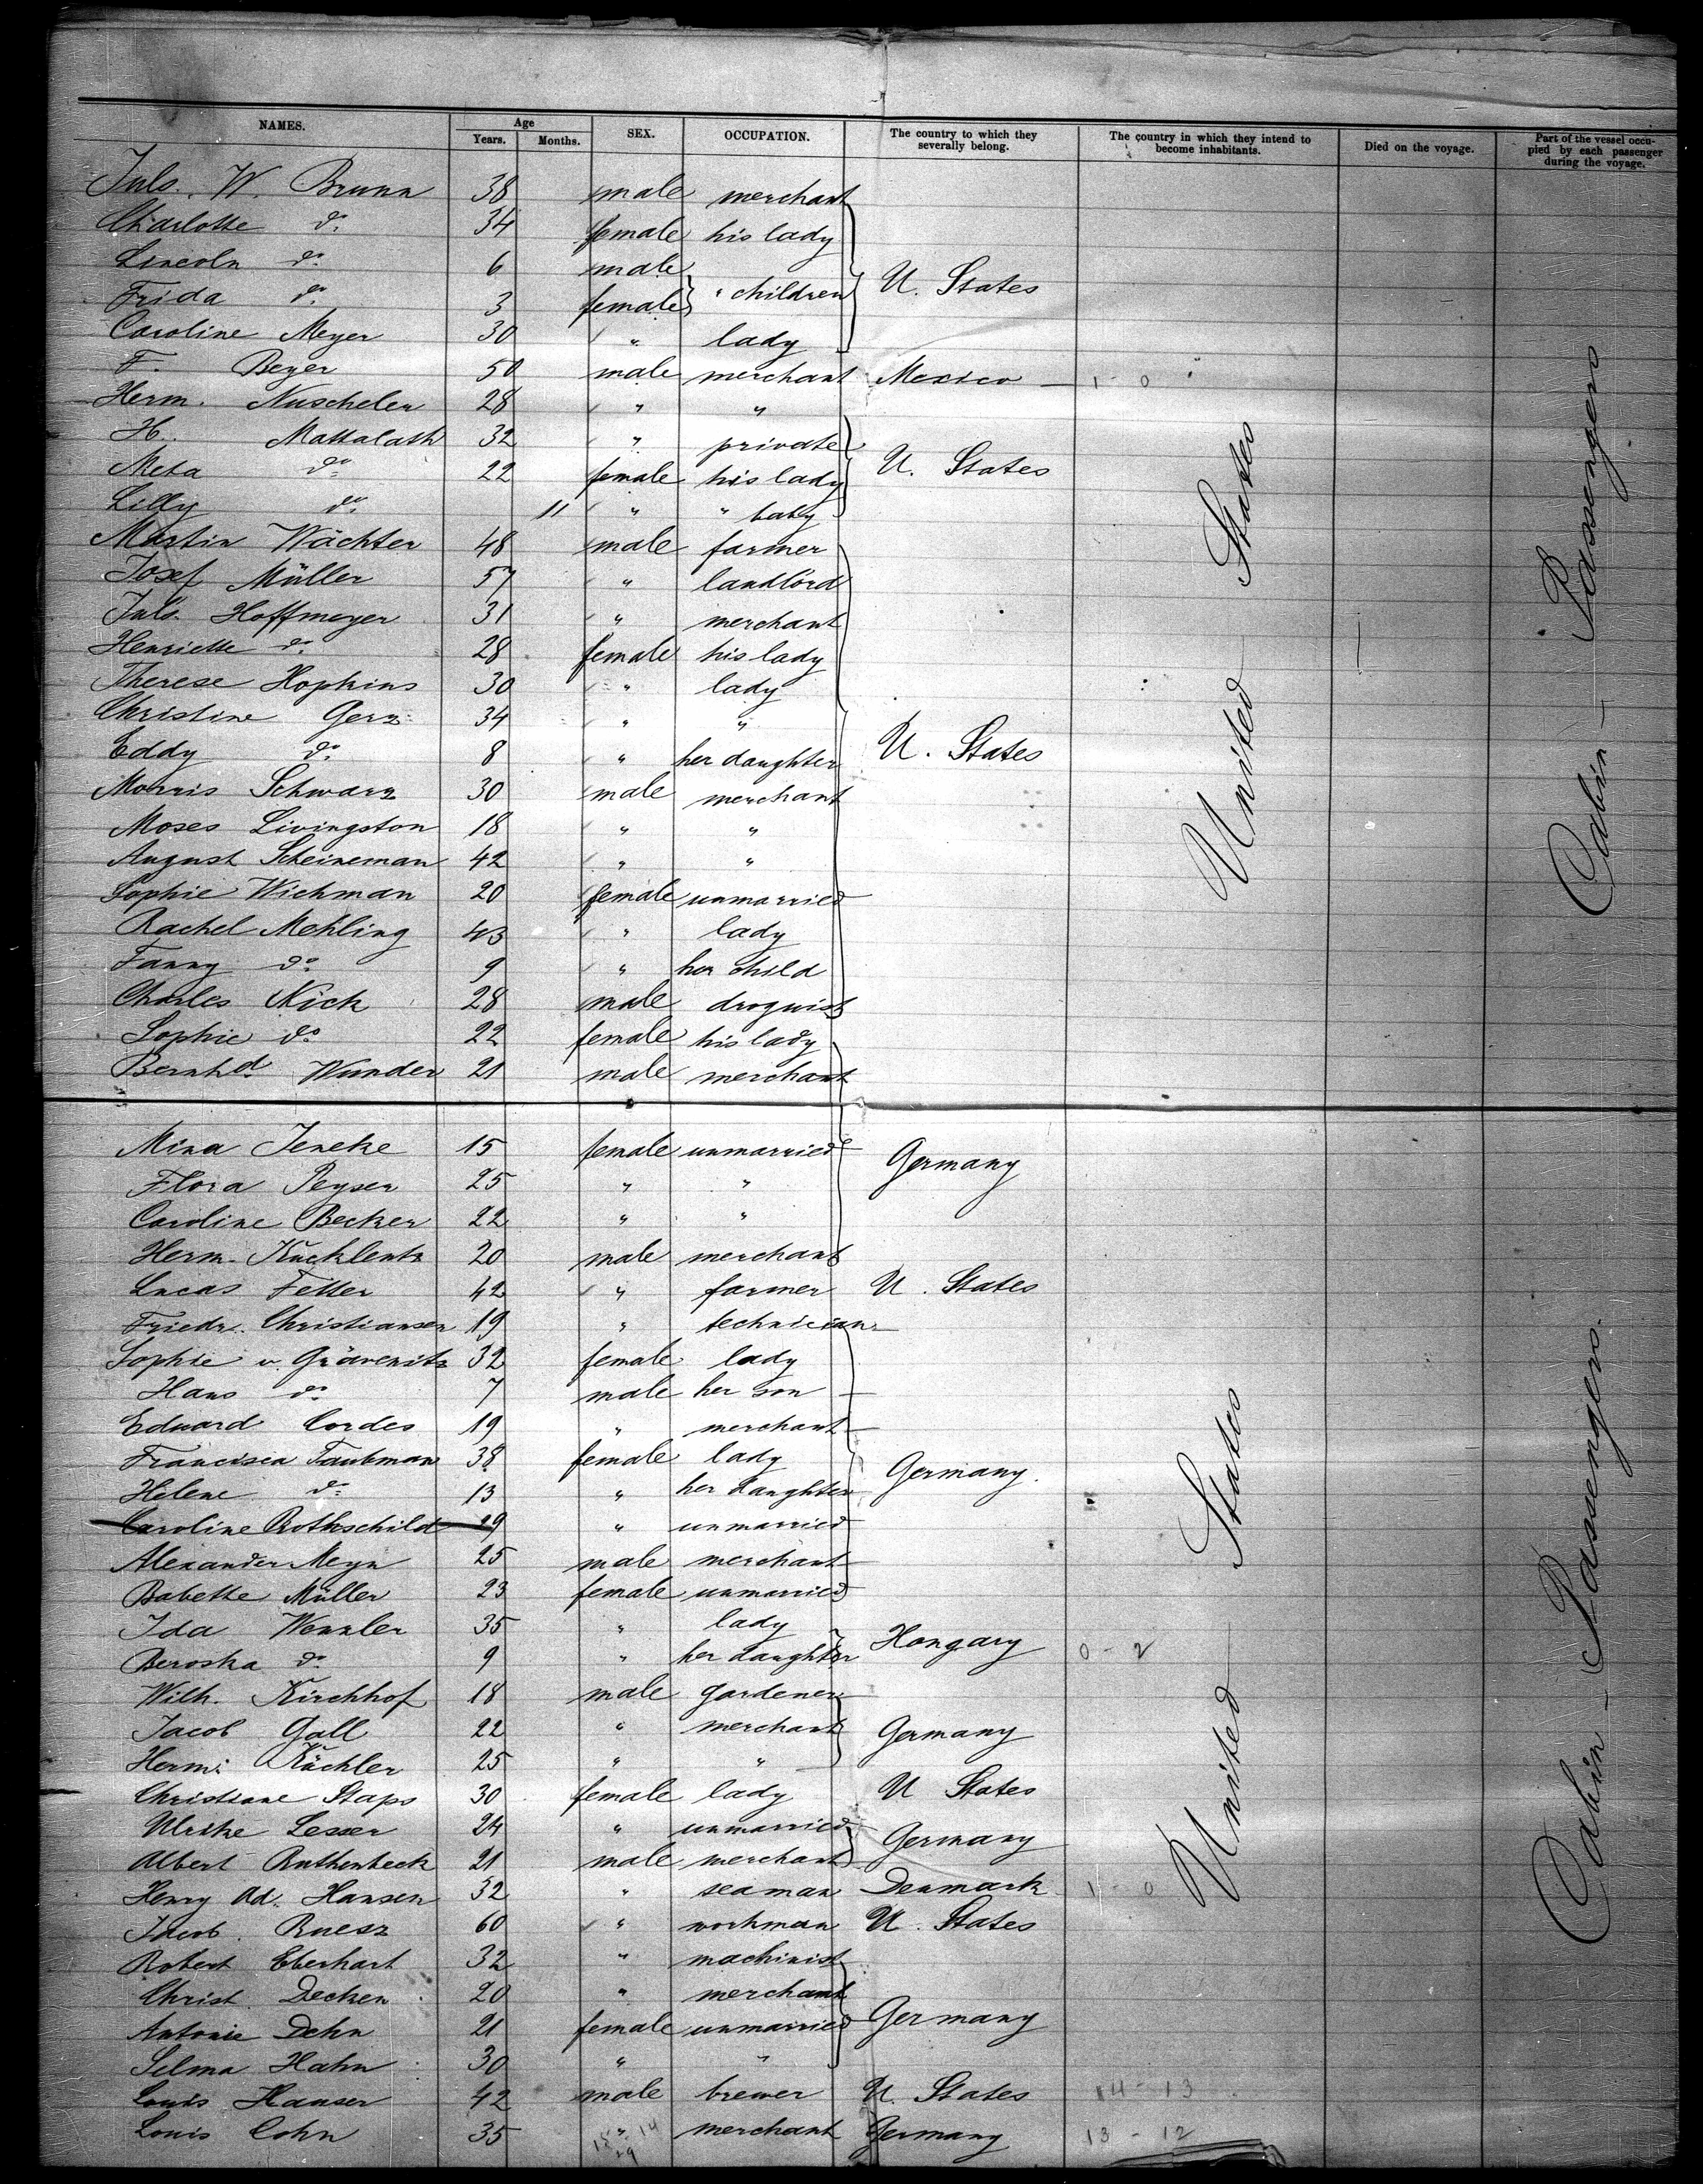 NAMES. Age Years. Months. SEX. OCCUPATION. The country to which they severally belong. The country in which they intend to become inhabitants. Died on the voyage. Part of the vessel occupied by each passenger during the voyage.
Juls. W. Brunn 38 male merchant
Charlotte do. 34 female his lady
Lincoln do. 6 male
Frida do. 3 female " children U. States
Caroline Meyer 30 " lady
F. Beyer 50 male merchant Mexico 1 - 0
Herm. Nuscheler 28 " "
H. Mattalath 32 " private
Meta do. 22 female his lady U. States
Lilly do. 11 " " baby
Martin Wächter 48 male farmer
Josef Müller 57 " landlord
Juls. Hoffmeyer 31 " merchant
Henriette do. 28 female his lady
Therese Hopkins 30 " lady
Christine Gerz 34 " "
Eddy do. 8 " her daughter U. States
Morris Schwarz 30 male merchant
Moses Livingston 18 " "
August Scheineman 42 " "
Sophie Wichman 20 female unmarried
Rachel Mehling 43 " lady
Fanny do. 9 " her child
Charles Kick 28 male droguist
Sophie do. 22 female his lady
Bernhd. Wunder 21 male merchant
United States
Cabin - Passengers
Mina Jencke 15 female unmarried Germany
Flora Peyser 25 " "
Caroline Becker 22 " "
Herm. Kücklentz 20 male merchant
Lucas Fetter 42 " farmer U. States
Friedr. Christiansen 19 " technician
Sophie v. Grävenitz 32 female lady
Hans do. 7 male her son
Eduard Cordes 19 " merchant
Francisca Taubman 38 female lady Germany.
Helene do. 13 " her daughter
Caroline Rothschild 29 " unmarried
Alexander Meyn 25 male merchant
Babette Müller 23 female unmarried
Ida Wenzler 35 " lady Hongary 0 - 2
Beroska do. 9 " her daughter
Wilh. Kirchhof 18 male gardener
Jacob Gall 22 " merchant Germany
Herm. Kächler 25 " "
Christiane Staps 30 female lady U States
Ulrike Lesser 24 " unmarried Germany
Albert Ruthenbeck 21 male merchant
Henry Ad. Hansen 32 " seaman Denmark 1 - 0
Jacob Ruesz 60 " workman U. States
Robert Eberhart 32 " machinist
Christ. Decken 20 " merchant
Antonie Dehn 21 female unmarried Germany
Selma Hahn 30 " "
Louis Hauser 42 male brewer U. States 14 - 13
Louis Cohn 35 " merchant Germany 13 - 12
United States
Cabin - Passengers.